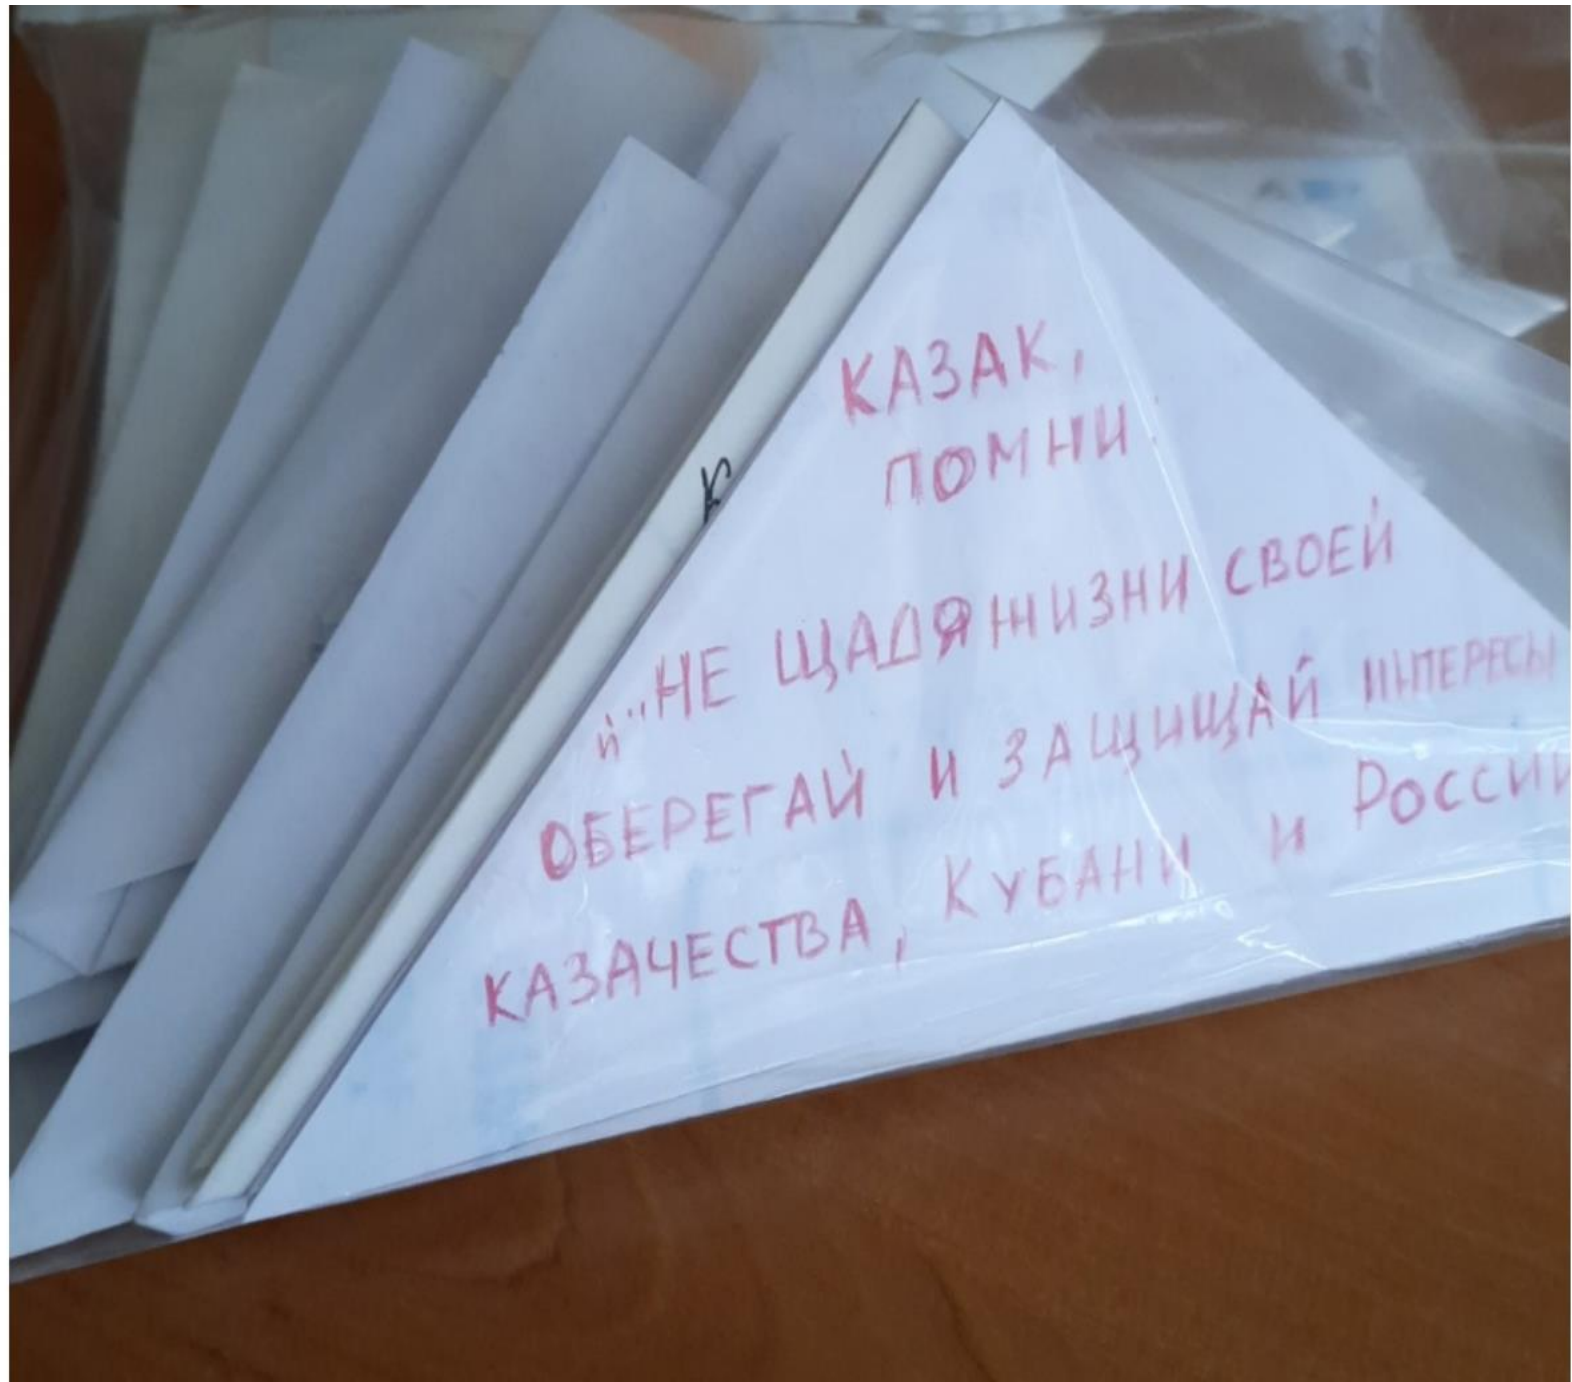 КАЗАК,
ПОМНИ:
"НЕ ЩАДЯ ЖИЗНИ СВОЕЙ
й
ОБЕРЕГАЙ И ЗАЩИЩАЙ ИНТЕРЕСЫ
КАЗАЧЕСТВА, КУБАНИ И РОССИИ
К